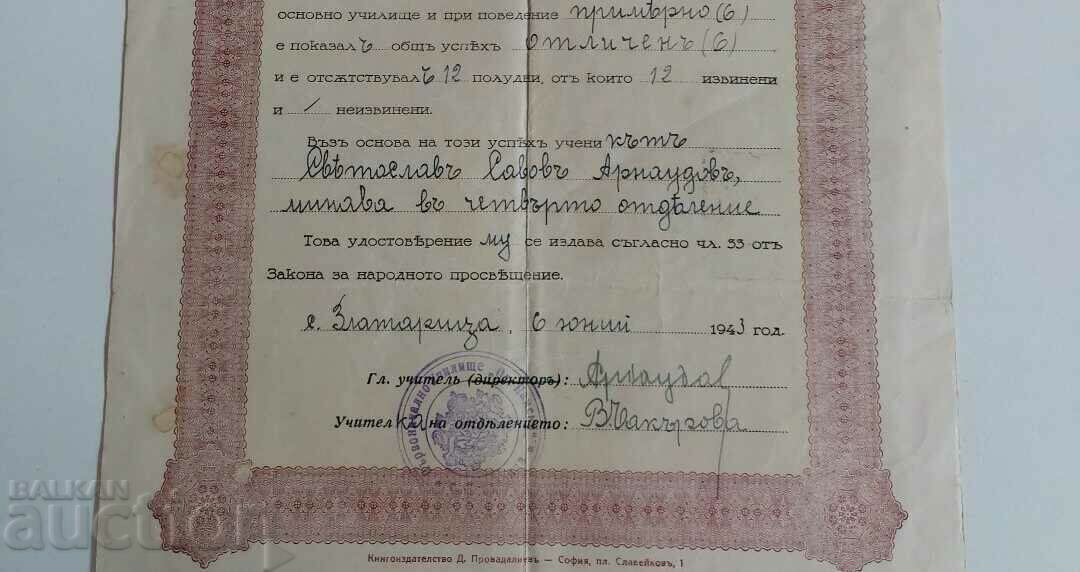 основно училище и при поведение примѣрно (6)
е показалъ общъ успѣхъ отличенъ (6)
и е отсѫтствувалъ 12 полудни, отъ които 12 извинени
и / неизвинени.
Възъ основа на този успѣхъ ученикътъ
Свѣтославъ Савовъ Арнаудовъ,
минава въ четвърто отдѣление
Това удостовѣрение му се издава съгласно чл. 33 отъ
Закона за народното просвѣщение.
с. Златарица, 6 юний 1943 год.
Гл. учитель (директоръ): Арнаудов
Учителка на отдѣлението: В. Чакърова
Първоначално училище
BALKAN
auction
Книгоиздателство Д. Провадалиевъ — София, пл. Славейковъ, 1